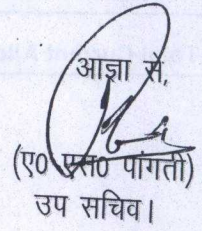 आज्ञा से,
(ए0 एस0 पांगती)
उप सचिव।